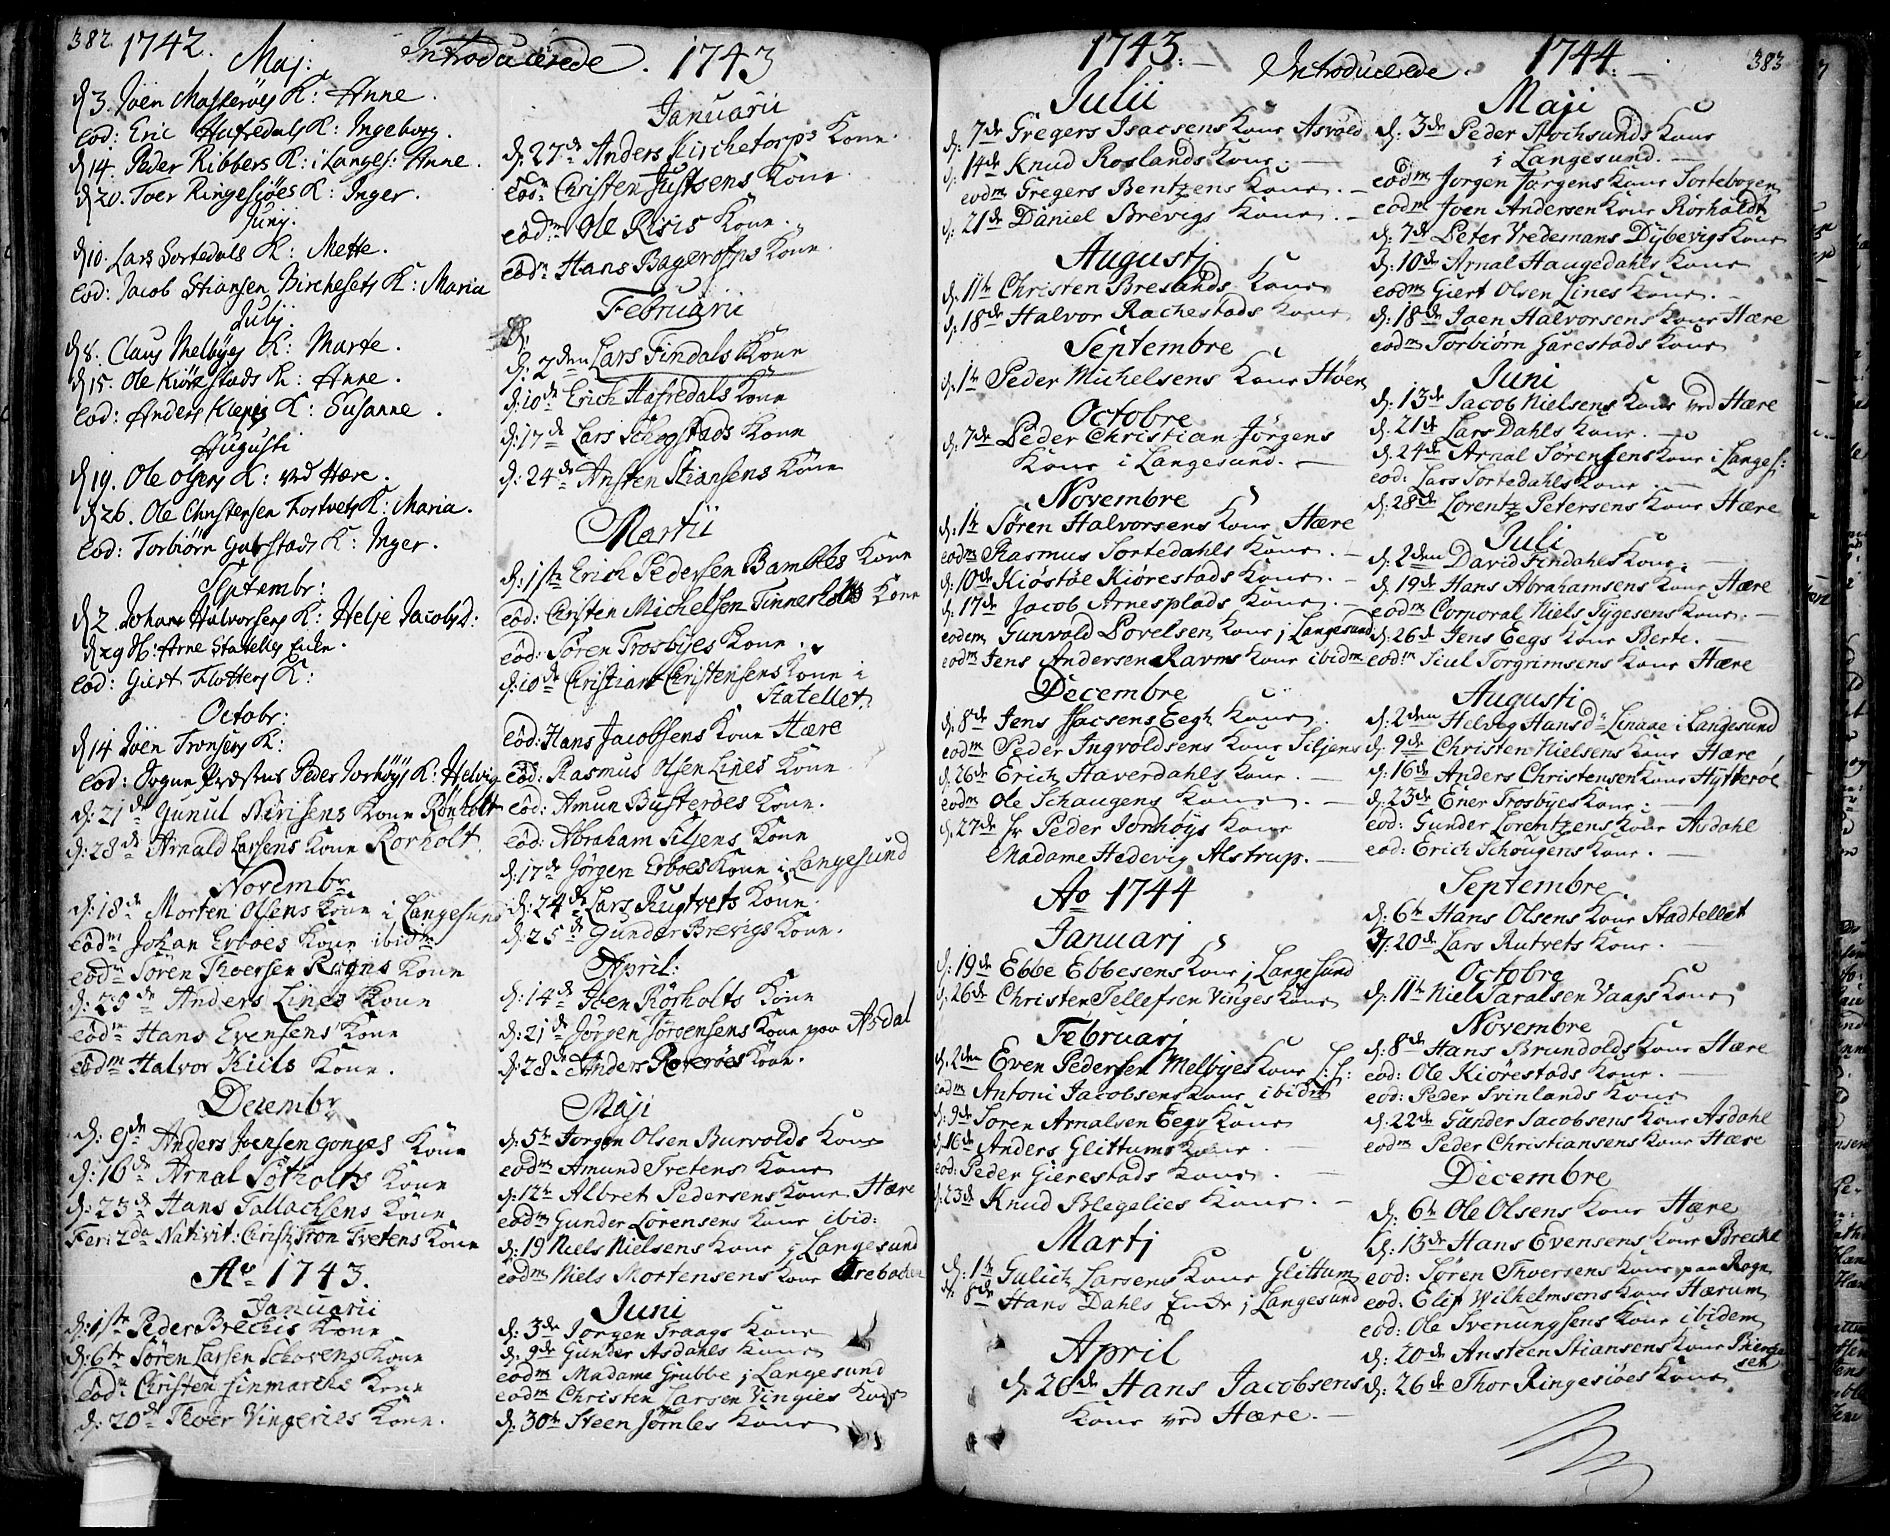 382. 1742. Introducerede. 1743
Maj:
d 3. Joen Masterøes K: Anne.
eod: Eric Hafredals K: Ingeborg.
d 14. Peder Ribbers K: i Langes: Anne.
d 20. Toer Ringesiøes K: Inger.
Junj.
d 10. Lars Sortedals K: Mette.
eod: Jacob Stiansen Birchesets K: Maria
Julij
d 8. Claus Melbyes K: Marte.
d 15. Ole Kiørestads K: Anne.
eod: Anders Kleppes K: Susanne.
Augusti
d 19. Ole Olsens K: ved Hære.
d 26. Ole Christensen Tostvets K: Maria.
eod: Torbiørn Garstads K: Inger.
Septembr:
d 2. Johans Halvorsens K: Helje Jacobsd:
d 29 Arne Statelles Enke.
eod: Giert Flottens K:
Octobr:
d 14 Joen Tronsens K:
eod: Sogne Præstens Peder Jorhøys K: Helvig
d: 21de Gunul Nirisens Kone Rørholt
d: 28de Arnald Larsens Kone Rørholt.
Novembr
d: 18de Morten Olsens Kone i Langesund
eodm Johan Erboes Kone ibidm
eodm Søren Thoersen Rogns Kone
d: 25de Anders Lines Kone
eodm Hans Evensens Kone
eodm Halvor Kiils Kone.
Decembr
d: 9de Anders Joensen Gonges Kone
d: 16de Arnal Sotholts Kone
d: 23de Hans Tallachsens Kone
Fer: 2da Nativit: Christi Tron Tvetens Kone
Ao 1743.
Januarii
d: 1ste Peder Brechis Kone
d: 6te Søren Larsen Schovens Kone
eodm Christen Finmarche Kone
d: 20de Thoer Vingeries Kone.
Januarii
d: 27de Anders Kirchetorps Kone.
eodm Christen Justsens Kone.
eodm Ole Risis Kone.
eodm Hans Bagerofps Kone.
Februarii
d: 2den Lars Findals Kone
d: 10de Erich Hafredals Kone
d: 17de Lars Schogstads Kone
d: 24de Ansten Stiansens Kone
Martii
d: 1ste Erich Pedersen Bambles Kone
eod: Christen Michelsen Tinnerholts Kone
eod: Søren Trosbyes Kone.
d: 10de Christian Christensens Kone i
Statellet.
eod: Hans Jacobsens Kone Hære
eod: Rasmus Olsen Lines Kone.
eod: Amun Busterøes Kone.
eod: Abraham Siljens Kone
d: 17de Jørgen Erboes Kone i Langesund
d: 24de Lars Rugtvets Kone.
d: 25de Gunder Brevigs Kone.
April:
d: 14de Joen Rørholts Kone
d: 21de Jørgen Jørgensens Kone paa Asdal
d: 28de Anders Roterøes Kone.
Maji
d: 5te Jørgen Olsen Burvolds Kone
eodm Amund Tvetens Kone
d: 12te Albret Pedersens Kone Hære
eodm Gunder Lorensens Kone ibid:
d: 19 Niels Nielsens Kone j Langesund
eodm Niels Mortensens Kone Trebachen
Juni
d: 3de Jørgen Traags Kone
d: 9de Gunder Asdahls Kone
eodm Madame Grubbe j Langesund
eodm Christen Larsen Vingies Kone
d: 30te Steen Jømles Kone
1743. Introducerede. 1744. 383
Julii
d: 7de Gregers Isacsens Kone Asvold
d: 14de Knud Roslands Kone.
eodm Gregers Bentzens Kone.
d: 21de Daniel Brevigs Kone.
Augustj
d: 11te Christen Breslands Kone
d: 18de Halvor Rachestads Kone
Septembre
d: 1te Peder Michelsens Kone Høen
Octobre
d: 7de Peder Christian Jørgens
Kone i Langesund.
Novembre
d: 1te Søren Halvorsens Kone Hære
eodm Rasmus Sortedahls Kone.
d: 10de Kiøstøl Kiørestads Kone.
d: 17de Jacob Arnesplads Kone.
eodem Gunvald Povelsen Kone j Langesund
eodm Jens Andersen Ravns Kone ibidm
Decembre
d: 8de Jens Isacsens Eegs Kone.
eodm Peder Ingvoldsens Kone Siljens
d: 26de Erich Haverdahls Kone.
eodm Ole Schaugens Kone.
d: 27de Hr Peder Jonhøys Kone
Madame Hedevig Alstrup.
Ao 1744
Januarj
d: 19de Ebbe Ebbesens Kone j Langesund
d: 26de Christen Tellefsen Vinges Kone
Februarj
d: 2den Even Pedersen Melbyes Kone L:S:
eodm Antoni Jacobsens Kone ibidm
d: 9de Søren Arnalsen Eegs Kone
d: 16de Anders Glittums Kone.
eod: Peder Gierestads Kone.
d: 23de Knud Blegelies Kone.
Martj
d: 1te Gulich Larsens Kone Glittum
d: 8de Hans Dahls Enke j Langesund
April
d: 26de Hans Jacobsens
Kone ved Hære.
Maji
d: 3de Peder Stochsunds Kone
i Langesund.
eodm Jørgen Jørgens Kone Sortebogen
eodm Joen Andersen Kone Rørholdt
d: 7de Peter Vredemans Dybevigs Kone
d: 10de Arnal Haugedahls Kone
eodm Giert Olsen Lines Kone.
d: 18de Joen Halvorsens Kone Hære
eodm Torbiørn Garestads Kone
Juni
d: 13de Jacob Nielsens Kone ved Hære
d: 21de Lars Dahls Kone.
d: 24de Arnal Sørensens Kone i Langes:
eod: Lars Sortedahls Kone.
d: 28de Lorentz Petersens Kone Hære
Juli
d: 2den David Findahls Kone.
d: 19de Hans Abrahamsens Kone Hære
eodm Corporal Niels Sygesens Kone.
d: 26de Jens Eegs Kone Berte.
eodm Siul Torgrimsens Kone Hære
Augusti
d: 2den Helvig Hansdr Linaae i Langesund
d: 9de Christen Nielsens Kone Hære
d: 16de Anders Christensen Kone Hytterøe
d: 23de Ener Trosbyes Kone.
eod: Gunder Lorentzens Kone Asdahl
eod: Erich Schougens Kone.
Septembre
d: 6te Hans Olsens Kone Stadtellet
d: 20de Lars Rutvets Kone.
Octobre
d: 11te Niels Taralsen Vaags Kone
Novembre
d: 8de Hans Brundolds Kone Hære
eod: Ole Kiørestads Kone.
eod: Peder Svinlands Kone
d: 22de Gunder Jacobsens Kone Asdahl
eodm Peder Christiansens Kone Hære
Decembre
d: 6te Ole Olsens Kone Hære
d: 13de Hans Evensens Kone Breche
eod: Søren Thoersens Kone paa Rogn
eod: Elif Wilhelmsens Kone Hærum
eod: Ole Svenungsens Kone ibidem
d: 20de Ansteen Stiansens Kone
d: 26de Thor Ringesiøes Kone